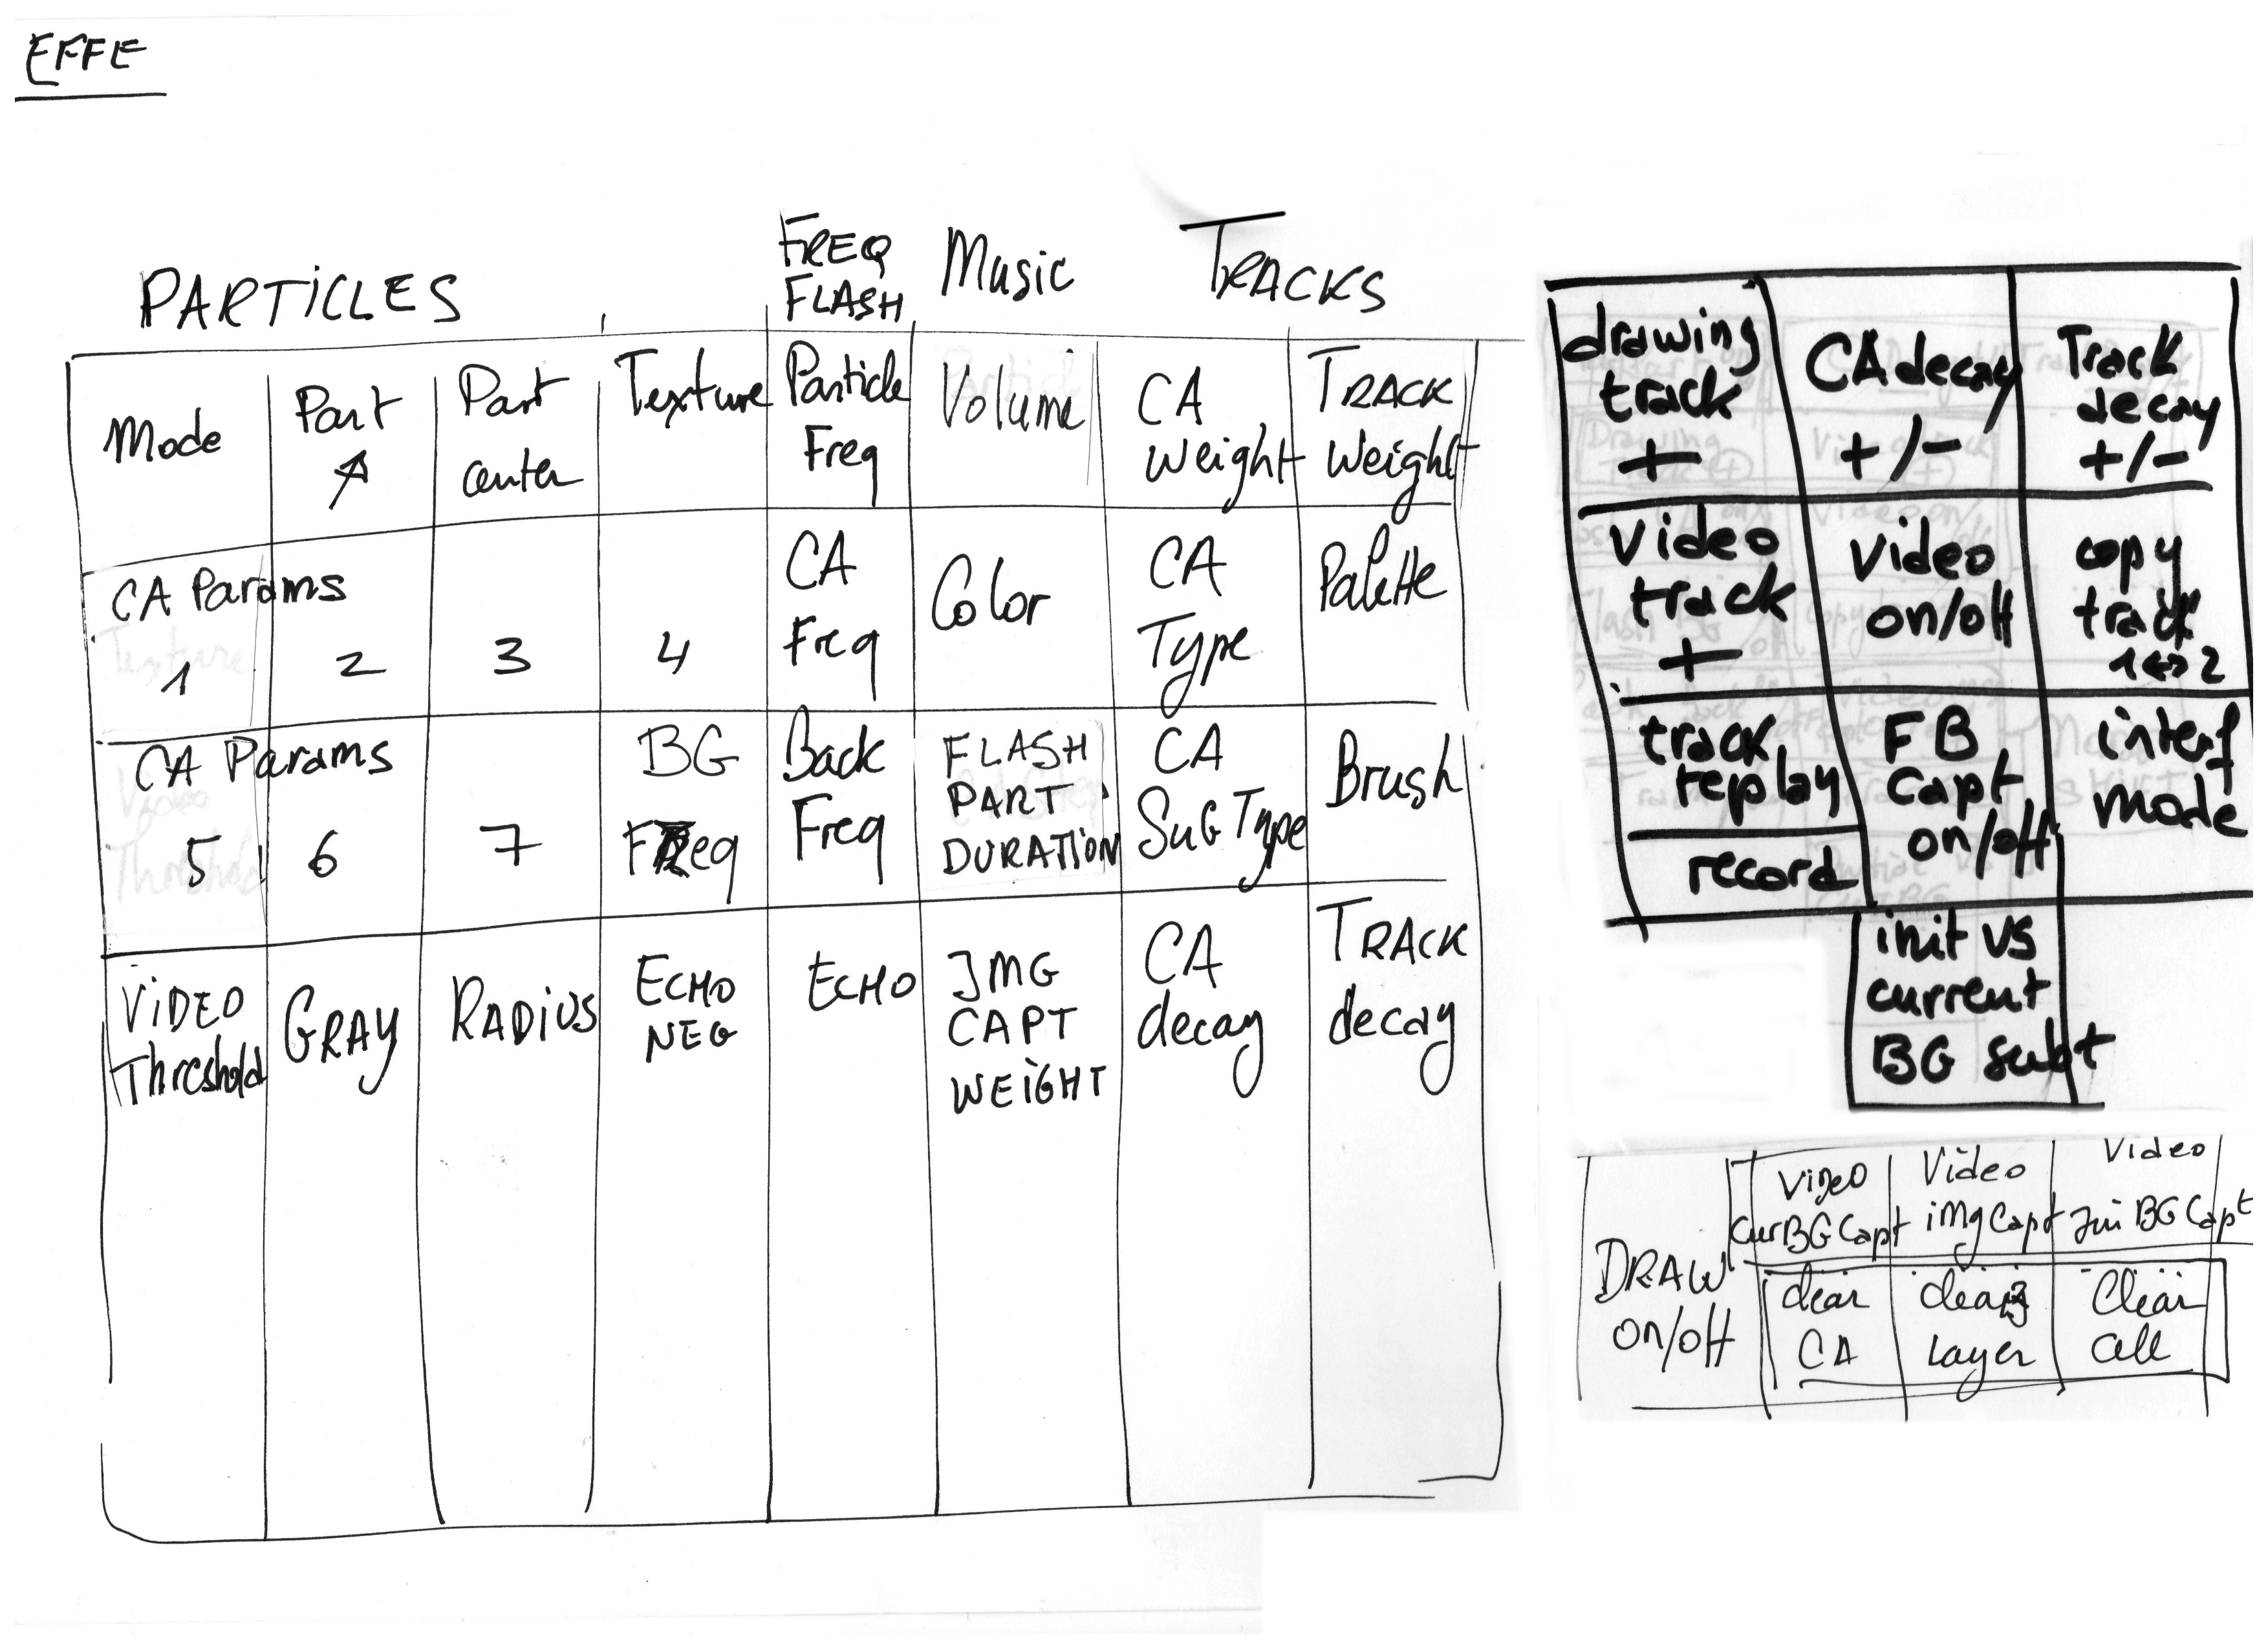 EFFE
PARTICLES
FREQ
FLASH
Music
TRACKS
Mode
Part
Part
center
Texture
Particle
Freq
Volume
CA
Weight
TRACK
Weight
CA Params
1
2
3
4
CA
Freq
Color
CA
Type
Palette
CA Params
5
6
7
BG
FReq
Back
Freq
FLASH
PART
DURATION
CA
SubType
Brush
ViDEO
Threshold
GRAY
RADiUS
ECHO
NEG
ECHO
IMG
CAPT
WEiGHT
CA
decay
TRACK
decay
drawing
track
+
CA decay
+/-
Track
decay
+/-
Video
track
+
Video
on/off
copy
track
1<->2
track
replay
record
FB
Capt
on/off
interf
mode
init vs
current
BG subt
DRAW
on/off
ViDEO
CurBGCapt
Video
iMgCapt
Video
Ini BG Capt
clear
CA
clear
Layer
Clear
all